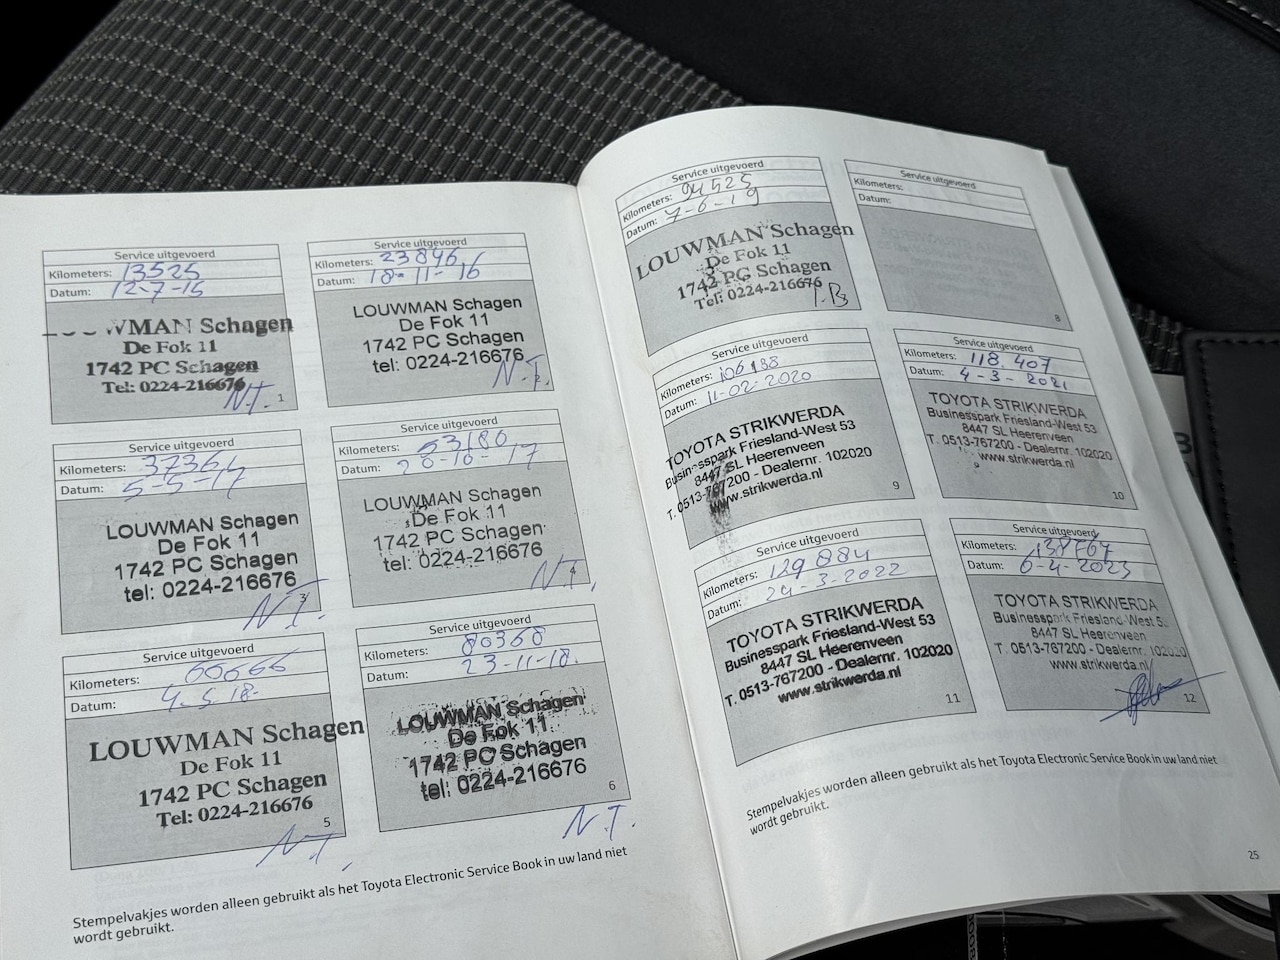 Service uitgevoerd
Kilometers: 13525
Datum: 12-7-16
LOUWMAN Schagen
De Fok 11
1742 PC Schagen
Tel: 0224-216676
N.T.
1
Service uitgevoerd
Kilometers: 23846
Datum: 18-11-16
LOUWMAN Schagen
De Fok 11
1742 PC Schagen
tel: 0224-216676
N.T.
2
Service uitgevoerd
Kilometers: 37364
Datum: 5-5-17
LOUWMAN Schagen
De Fok 11
1742 PC Schagen
tel: 0224-216676
3
N.T.
Service uitgevoerd
Kilometers: 53186
Datum: 20-10-17
LOUWMAN Schagen
De Fok 11
1742 PC Schagen
tel: 0224-216676
N.T.
Service uitgevoerd
Kilometers: 66666
Datum: 4-5-18-
LOUWMAN Schagen
De Fok 11
1742 PC Schagen
Tel: 0224-216676
5
N.T.
Service uitgevoerd
Kilometers: 80368
Datum: 23-11-18.
LOUWMAN Schagen
De Fok 11
1742 PC Schagen
tel: 0224-216676
6
N.T.
Stempelvakjes worden alleen gebruikt als het Toyota Electronic Service Book in uw land niet
wordt gebruikt.
Service uitgevoerd
Kilometers: 94525
Datum: 7-6-19
LOUWMAN Schagen
De Fok 11
1742 PC Schagen
Tel: 0224-216676
Service uitgevoerd
Kilometers:
Datum:
8
Service uitgevoerd
Kilometers: 106138
Datum: 11-02-2020
TOYOTA STRIKWERDA
Businesspark Friesland-West 53
8447 SL Heerenveen
T. 0513-767200 - Dealernr. 102020
www.strikwerda.nl
9
Service uitgevoerd
Kilometers: 118.407
Datum: 4-3-2021
TOYOTA STRIKWERDA
Businesspark Friesland-West 53
8447 SL Heerenveen
T. 0513-767200 - Dealernr. 102020
www.strikwerda.nl
10
Service uitgevoerd
Kilometers: 129884
Datum: 24-3-2022
TOYOTA STRIKWERDA
Businesspark Friesland-West 53
8447 SL Heerenveen
T. 0513-767200 - Dealernr. 102020
www.strikwerda.nl
11
Service uitgevoerd
Kilometers: 138764
Datum: 6-4-2023
TOYOTA STRIKWERDA
Businesspark Friesland-West 5
8447 SL Heerenveen
T. 0513-767200 - Dealernr. 102020
www.strikwerda.nl
12
Stempelvakjes worden alleen gebruikt als het Toyota Electronic Service Book in uw land niet
wordt gebruikt.
25